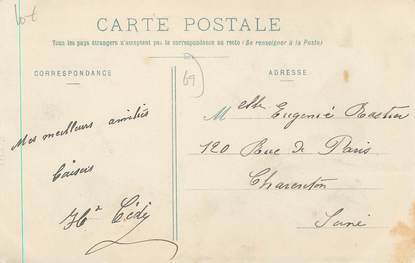 lot
CARTE POSTALE
Tous les pays étrangers n'acceptent pas la correspondance au recto (Se renseigner à la Poste)
CORRESPONDANCE
69
ADRESSE
Mes meilleurs amitiés
baisers
Melle Eugenie
120 Rue de Paris
Charenton
Seine